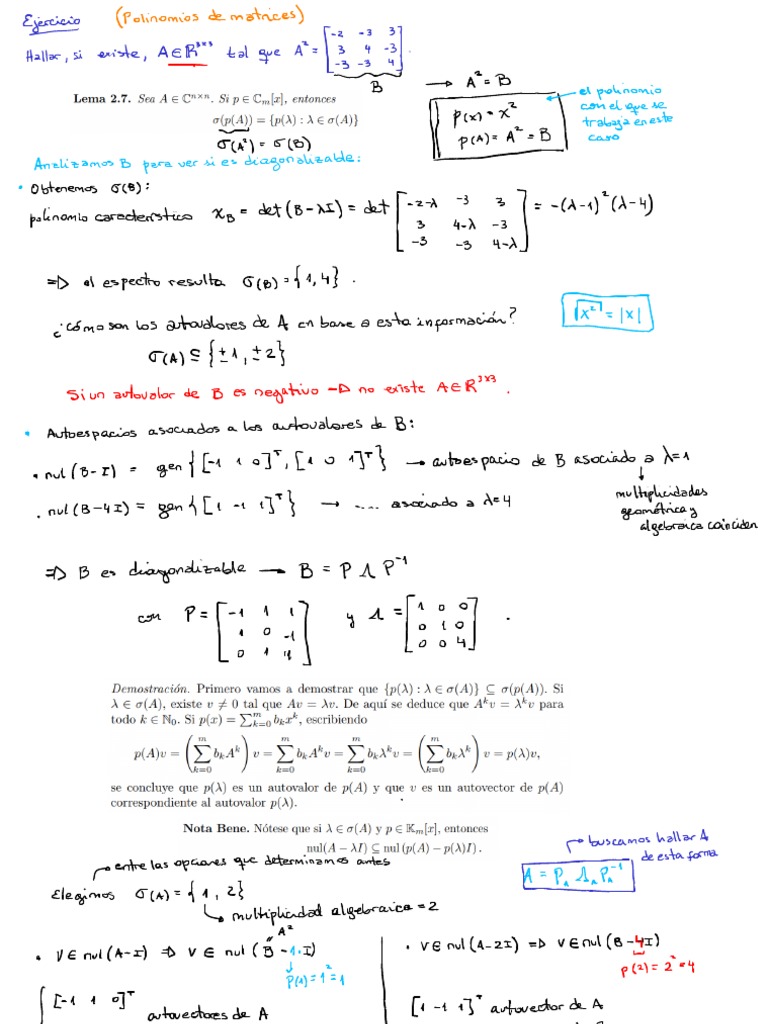 Ejercicio (Polinomios de matrices)
Hallar, si existe, A∈ℝ³ˣ³ tal que A² = [-2 -3 3; 3 4 -3; -3 -3 4].
B
Lema 2.7. Sea A ∈ ℂⁿˣⁿ. Si p ∈ ℂₘ[x], entonces
σ(p(A)) = {p(λ) : λ ∈ σ(A)}
σ(A²) = σ(B)
→ A² = B
p(x) = x²
p(A) = A² = B
el polinomio
con el que se
trabaja en este
caso
Analizamos B para ver si es diagonalizable:
• Obtenemos σ(B):
polinomio característico χ_B = det(B-λI) = det [-2-λ -3 3; 3 4-λ -3; -3 -3 4-λ] = -(λ-1)²(λ-4)
⇒ el espectro resulta σ(B) = {1,4}.
¿Cómo son los autovalores de A en base a esta información?
√x² = |x|
σ(A) ⊆ {±1, ±2}
Si un autovalor de B es negativo → no existe A∈ℝ³ˣ³.
• Autoespacios asociados a los autovalores de B:
• nul(B-I) = gen{[-1 1 0]ᵀ, [1 0 1]ᵀ} → autoespacio de B asociado a λ=1
• nul(B-4I) = gen{[1 -1 1]ᵀ} → .... asociado a λ=4
multiplicidades
geométrica y
algebraica coinciden
⇒ B es diagonalizable → B = P Λ P⁻¹
con P = [-1 1 1; 1 0 -1; 0 1 1] y Λ = [1 0 0; 0 1 0; 0 0 4].
Demostración. Primero vamos a demostrar que {p(λ) : λ ∈ σ(A)} ⊆ σ(p(A)). Si
λ ∈ σ(A), existe v ≠ 0 tal que Av = λv. De aquí se deduce que Aᵏv = λᵏv para
todo k ∈ ℕ₀. Si p(x) = ∑ᵐₖ₌₀ bₖxᵏ, escribiendo
p(A)v = (∑ᵐₖ₌₀ bₖAᵏ) v = ∑ᵐₖ₌₀ bₖAᵏv = ∑ᵐₖ₌₀ bₖλᵏv = (∑ᵐₖ₌₀ bₖλᵏ) v = p(λ)v,
se concluye que p(λ) es un autovalor de p(A) y que v es un autovector de p(A)
correspondiente al autovalor p(λ).
Nota Bene. Nótese que si λ ∈ σ(A) y p ∈ 𝕂ₘ[x], entonces
nul(A − λI) ⊆ nul (p(A) − p(λ)I) .
buscamos hallar A
de esta forma
A = P_A Λ_A P_A⁻¹
entre las opciones que determinamos antes
Elegimos σ(A) = {1, 2}
multiplicidad algebraica = 2
• v∈nul(A-I) ⇒ v∈ nul(B-1·I)
A²
p(1) = 1² = 1
[-1 1 0]ᵀ
autovectores de A
• v∈nul(A-2I) ⇒ v∈nul(B-4I)
p(2) = 2² = 4
[1 -1 1]ᵀ autovector de A